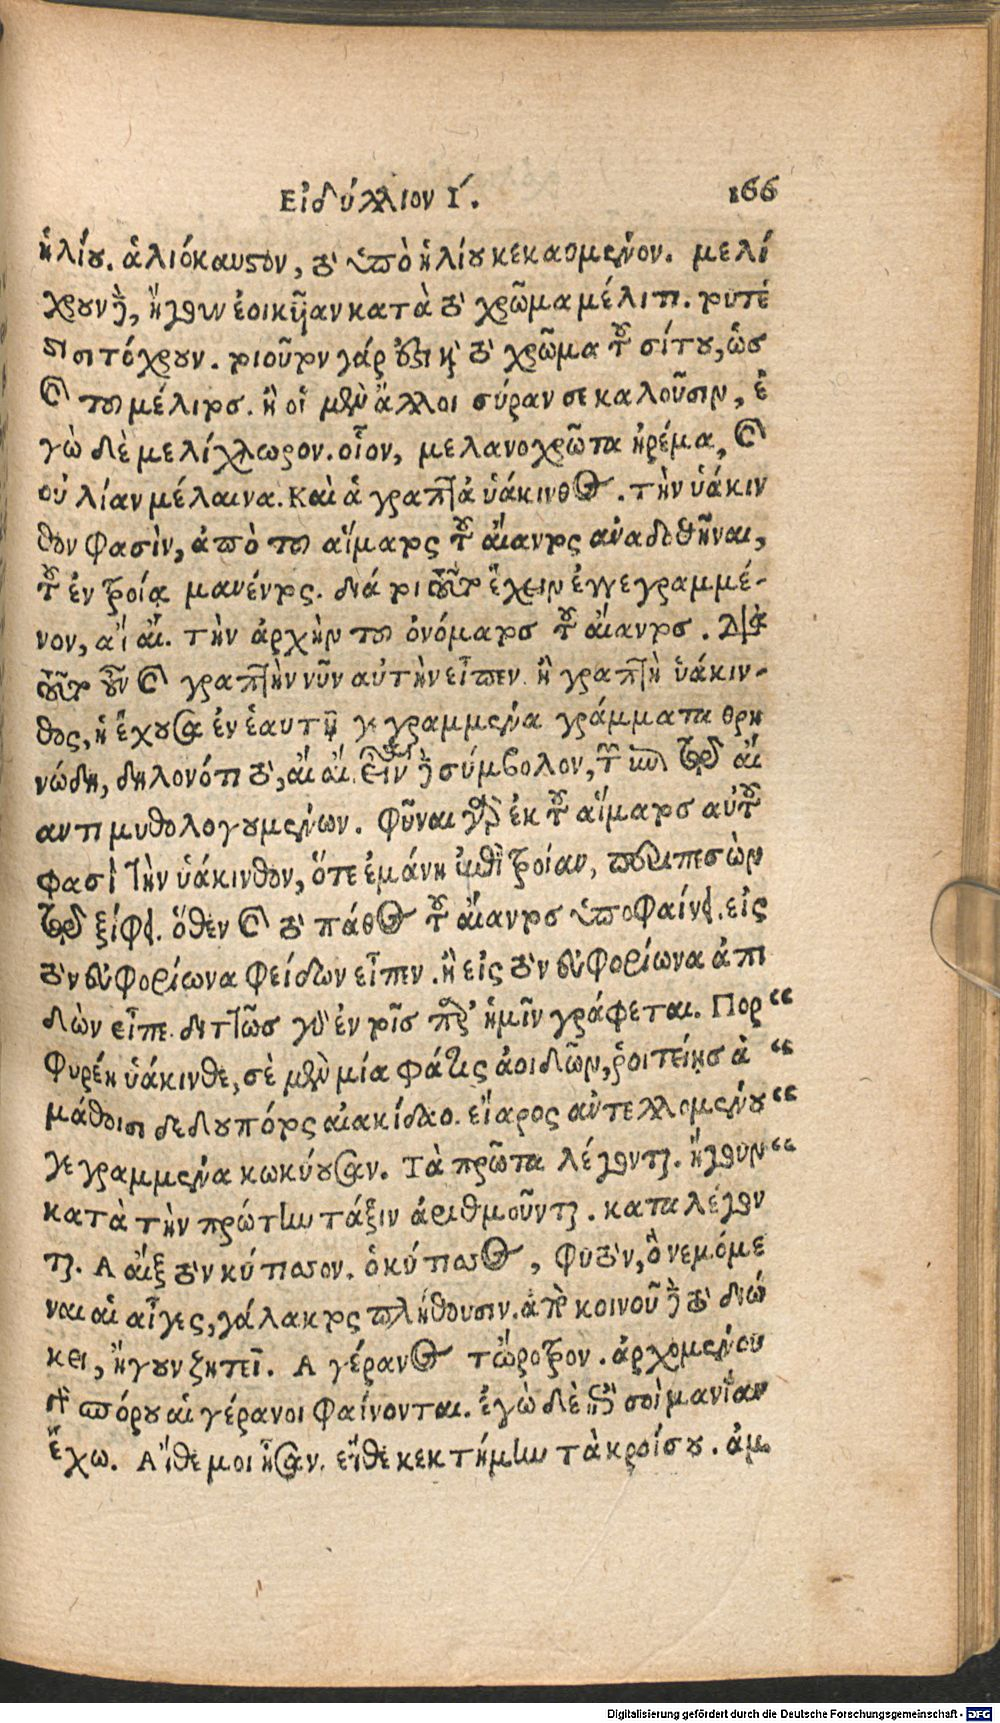 Εἰδύλλιον Ι΄. 166
ἡλίου. ἁλιόκαυστον, τὸ ὑπὸ ἡλίου κεκαυμένον. μελί
χρουν δὲ, ἤγουν ἐοικυῖαν κατὰ τὸ χρῶμα μέλιτι. τουτέ
στι σιτόχρουν. τοιοῦτον γάρ ἐστι καὶ τὸ χρῶμα τοῦ σίτου, ὡς
καὶ τοῦ μέλιτος. ἢ οἱ μὲν ἄλλοι σύραν σε καλοῦσιν, ἐ
γὼ δὲ μελίχλωρον. οἷον, μελανοχρῶτα ἠρέμα, καὶ
οὐ λίαν μέλαινα. Καὶ ἁ γραπτὰ ὑάκινθος. τὴν ὑάκιν
θον φασὶν, ἀπὸ τοῦ αἵματος τοῦ αἴαντος ἀναδοθῆναι,
τοῦ ἐν τροίᾳ μανέντος. διά τοι τοῦτο ἔχειν ἐγγεγραμμέ-
νον, αἲ αἲ. τὴν ἀρχὴν τοῦ ὀνόματος τοῦ αἴαντος. διὰ
τοῦτο οὖν καὶ γραπτὴν νῦν αὐτὴν εἶπεν. ἢ γραπτὴ ὑάκιν-
θος, ἡ ἔχουσα ἐν ἑαυτῇ γεγραμμένα γράμματα θρη
νώδη, δηλονότι τὸ, αἲ αἲ. ἔστιν δὲ σύμβολον, τῶν ἐπὶ τῷ αἴ
αντι μυθολογουμένων. φῦναι γὰρ ἐκ τοῦ αἵματος αὐτοῦ
φασὶ τὴν ὑάκινθον, ὅτε ἐμάνη κατὰ τροίαν, περιπεσὼν
τῷ ξίφει. ὅθεν καὶ τὸ πάθος τοῦ αἴαντος ὑποφαίνει. εἰς
τὸν εὐφορίωνα φείδων εἶπεν. ἢ εἰς τὸν εὐφορίωνα ἀπι
δὼν εἶπε. διττῶς γὰρ ἐν τοῖς παρ’ ἡμῖν γράφεται. Πορ “
φυρέη ὑάκινθε, σὲ μὲν μία φάτις ἀοιδῶν, ῥοιτείῃς ἀ “
μάθοισι δεδουπότος αἰακίδαο. εἴαρος αὐτελλομένου “
γεγραμμένα κωκύουσαν. Τὰ πρῶτα λέγονται. ἤγουν “
κατὰ τὴν πρώτην τάξιν ἀριθμοῦνται. καταλέγον
ται. Α αἲξ τὸν κύτισον. ὁ κύτισος, φυτὸν, ὃ νεμόμε
ναι αἱ αἶγες, γάλακτος πλήθουσιν. ἀπὸ κοινοῦ δὲ τὸ διώ
κει, ἤγουν ζητεῖ. Α γέρανος τὤροτρον. ἀρχομένου
τοῦ σπόρου αἱ γέρανοι φαίνονται. ἐγὼ δὲ ἐπὶ σοὶ μανίαν
ἔχω. Αἴθε μοι ἦσαν. εἴθε κεκτήμην τὰ κροίσου. ἀμ
Digitalisierung gefördert durch die Deutsche Forschungsgemeinschaft - DFG